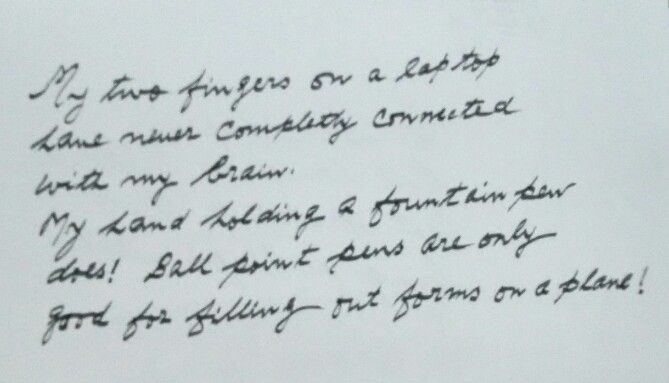 My two fingers on a laptop
have never completly connected
with my brain.
My hand holding a fountain pen
does! Ball point pens are only
good for filling out forms on a plane!